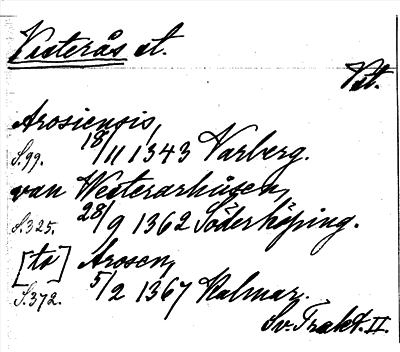 Västerås st.
Vst.
Arosiensis,
S. 99. 18/11 1343 Varberg.
van Westerarhusen,
S. 325. 28/9 1362 Söderköping.
[to] Arosen,
S. 372. 5/2 1367 Kalmar.
Sv. Trakt. II.